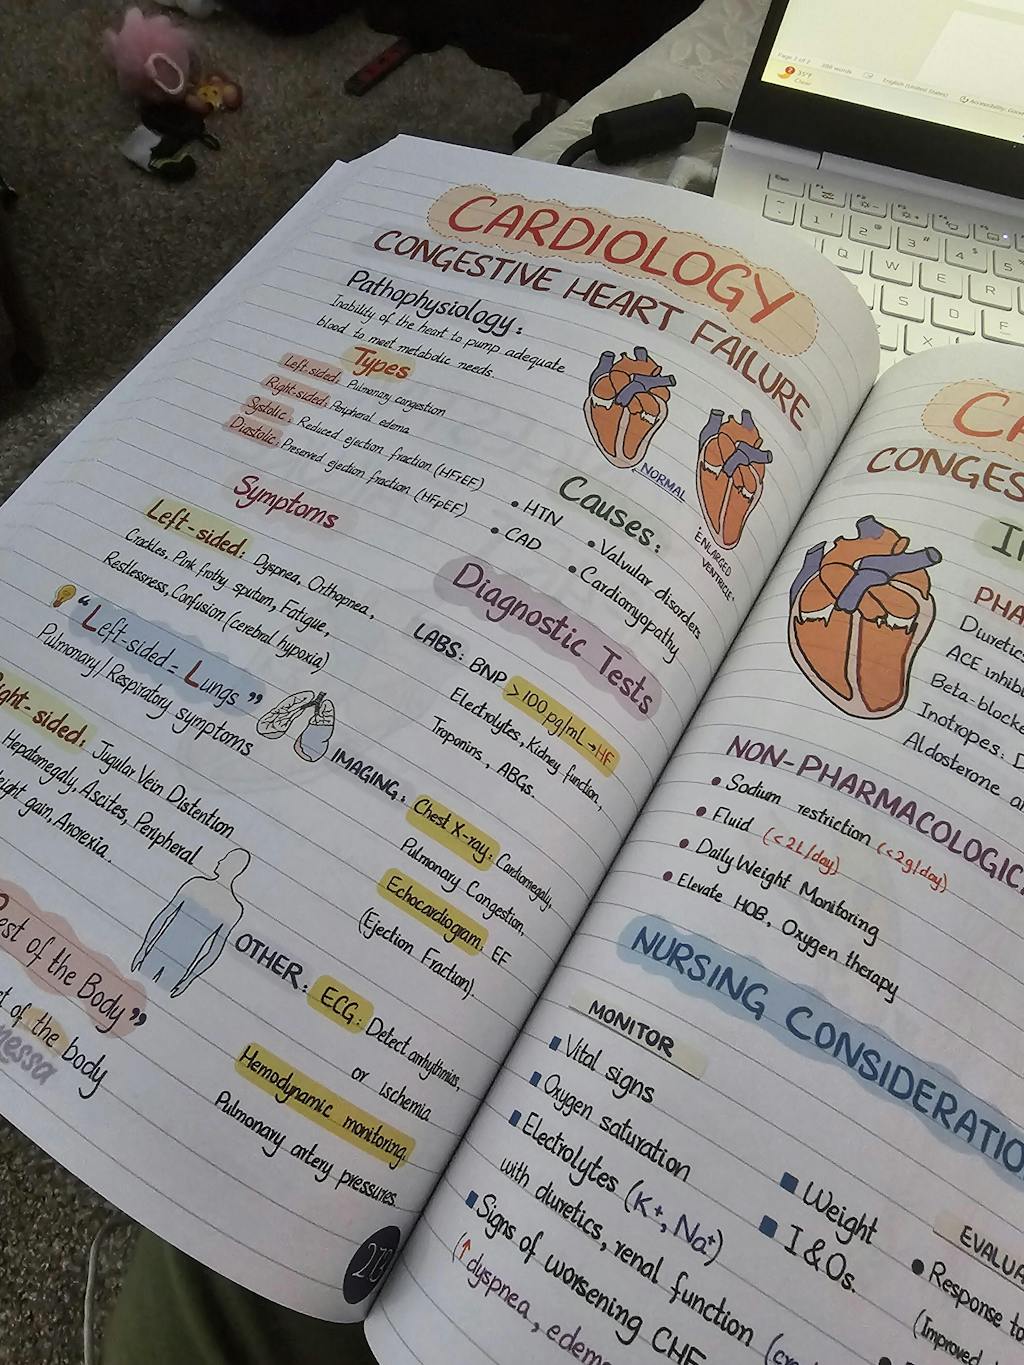 CARDIOLOGY
CONGESTIVE HEART FAILURE
Pathophysiology:
Inability of the heart to pump adequate
blood to meet metabolic needs.
Types
Left-sided: Pulmonary congestion
Right-sided: Peripheral edema
Systolic: Reduced ejection fraction (HFrEF)
Diastolic: Preserved ejection fraction (HFpEF)
NORMAL
ENLARGED
VENTRICLE
Causes:
• HTN
• CAD
• Valvular disorders
• Cardiomyopathy
Symptoms
Left-sided: Dyspnea, Orthopnea,
Crackles, Pink frothy sputum, Fatigue,
Restlessness, Confusion (cerebral hypoxia)
"Left-sided = Lungs"
Pulmonary/Respiratory symptoms
ght-sided: Jugular Vein Distention
Hepatomegaly, Ascites, Peripheral
eight gain, Anorexia.
est of the Body"
t of the body
Diagnostic Tests
LABS: BNP >100 pg/mL → HF
Electrolytes, Kidney function,
Troponins, ABGs.
IMAGING: Chest X-ray: Cardiomegaly,
Pulmonary Congestion,
Echocardiogram: EF
(Ejection Fraction).
OTHER: ECG: Detect arrhythmias,
or ischemia
Hemodynamic monitoring:
Pulmonary artery pressures.
C
CONGES
PHA
Diuretic
ACE inhib
Beta-blocke
Inotropes: D
Aldosterone a
NON-PHARMACOLOGIC
• Sodium restriction (<2g/day)
• Fluid (<2L/day)
• Daily Weight Monitoring
• Elevate HOB, Oxygen therapy
NURSING CONSIDERATIO
MONITOR
■ Vital signs
■ Oxygen saturation
■ Electrolytes (K+, Na+)
with diuretics, renal function (cr
■ Signs of worsening CHF
(↑dyspnea, edem
■ Weight
■ I & Os.
EVALUA
• Response to
(Improved
Page 1 of 2
English (United States)
35°F
Clear
1
2
3
4
5
Q
W
E
R
S
D
F
X